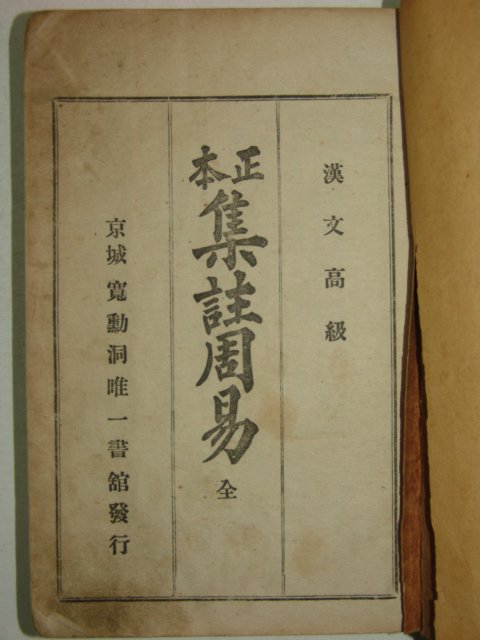 漢文高級
正本
集註周易
全
京城寬勳洞唯一書舘發行